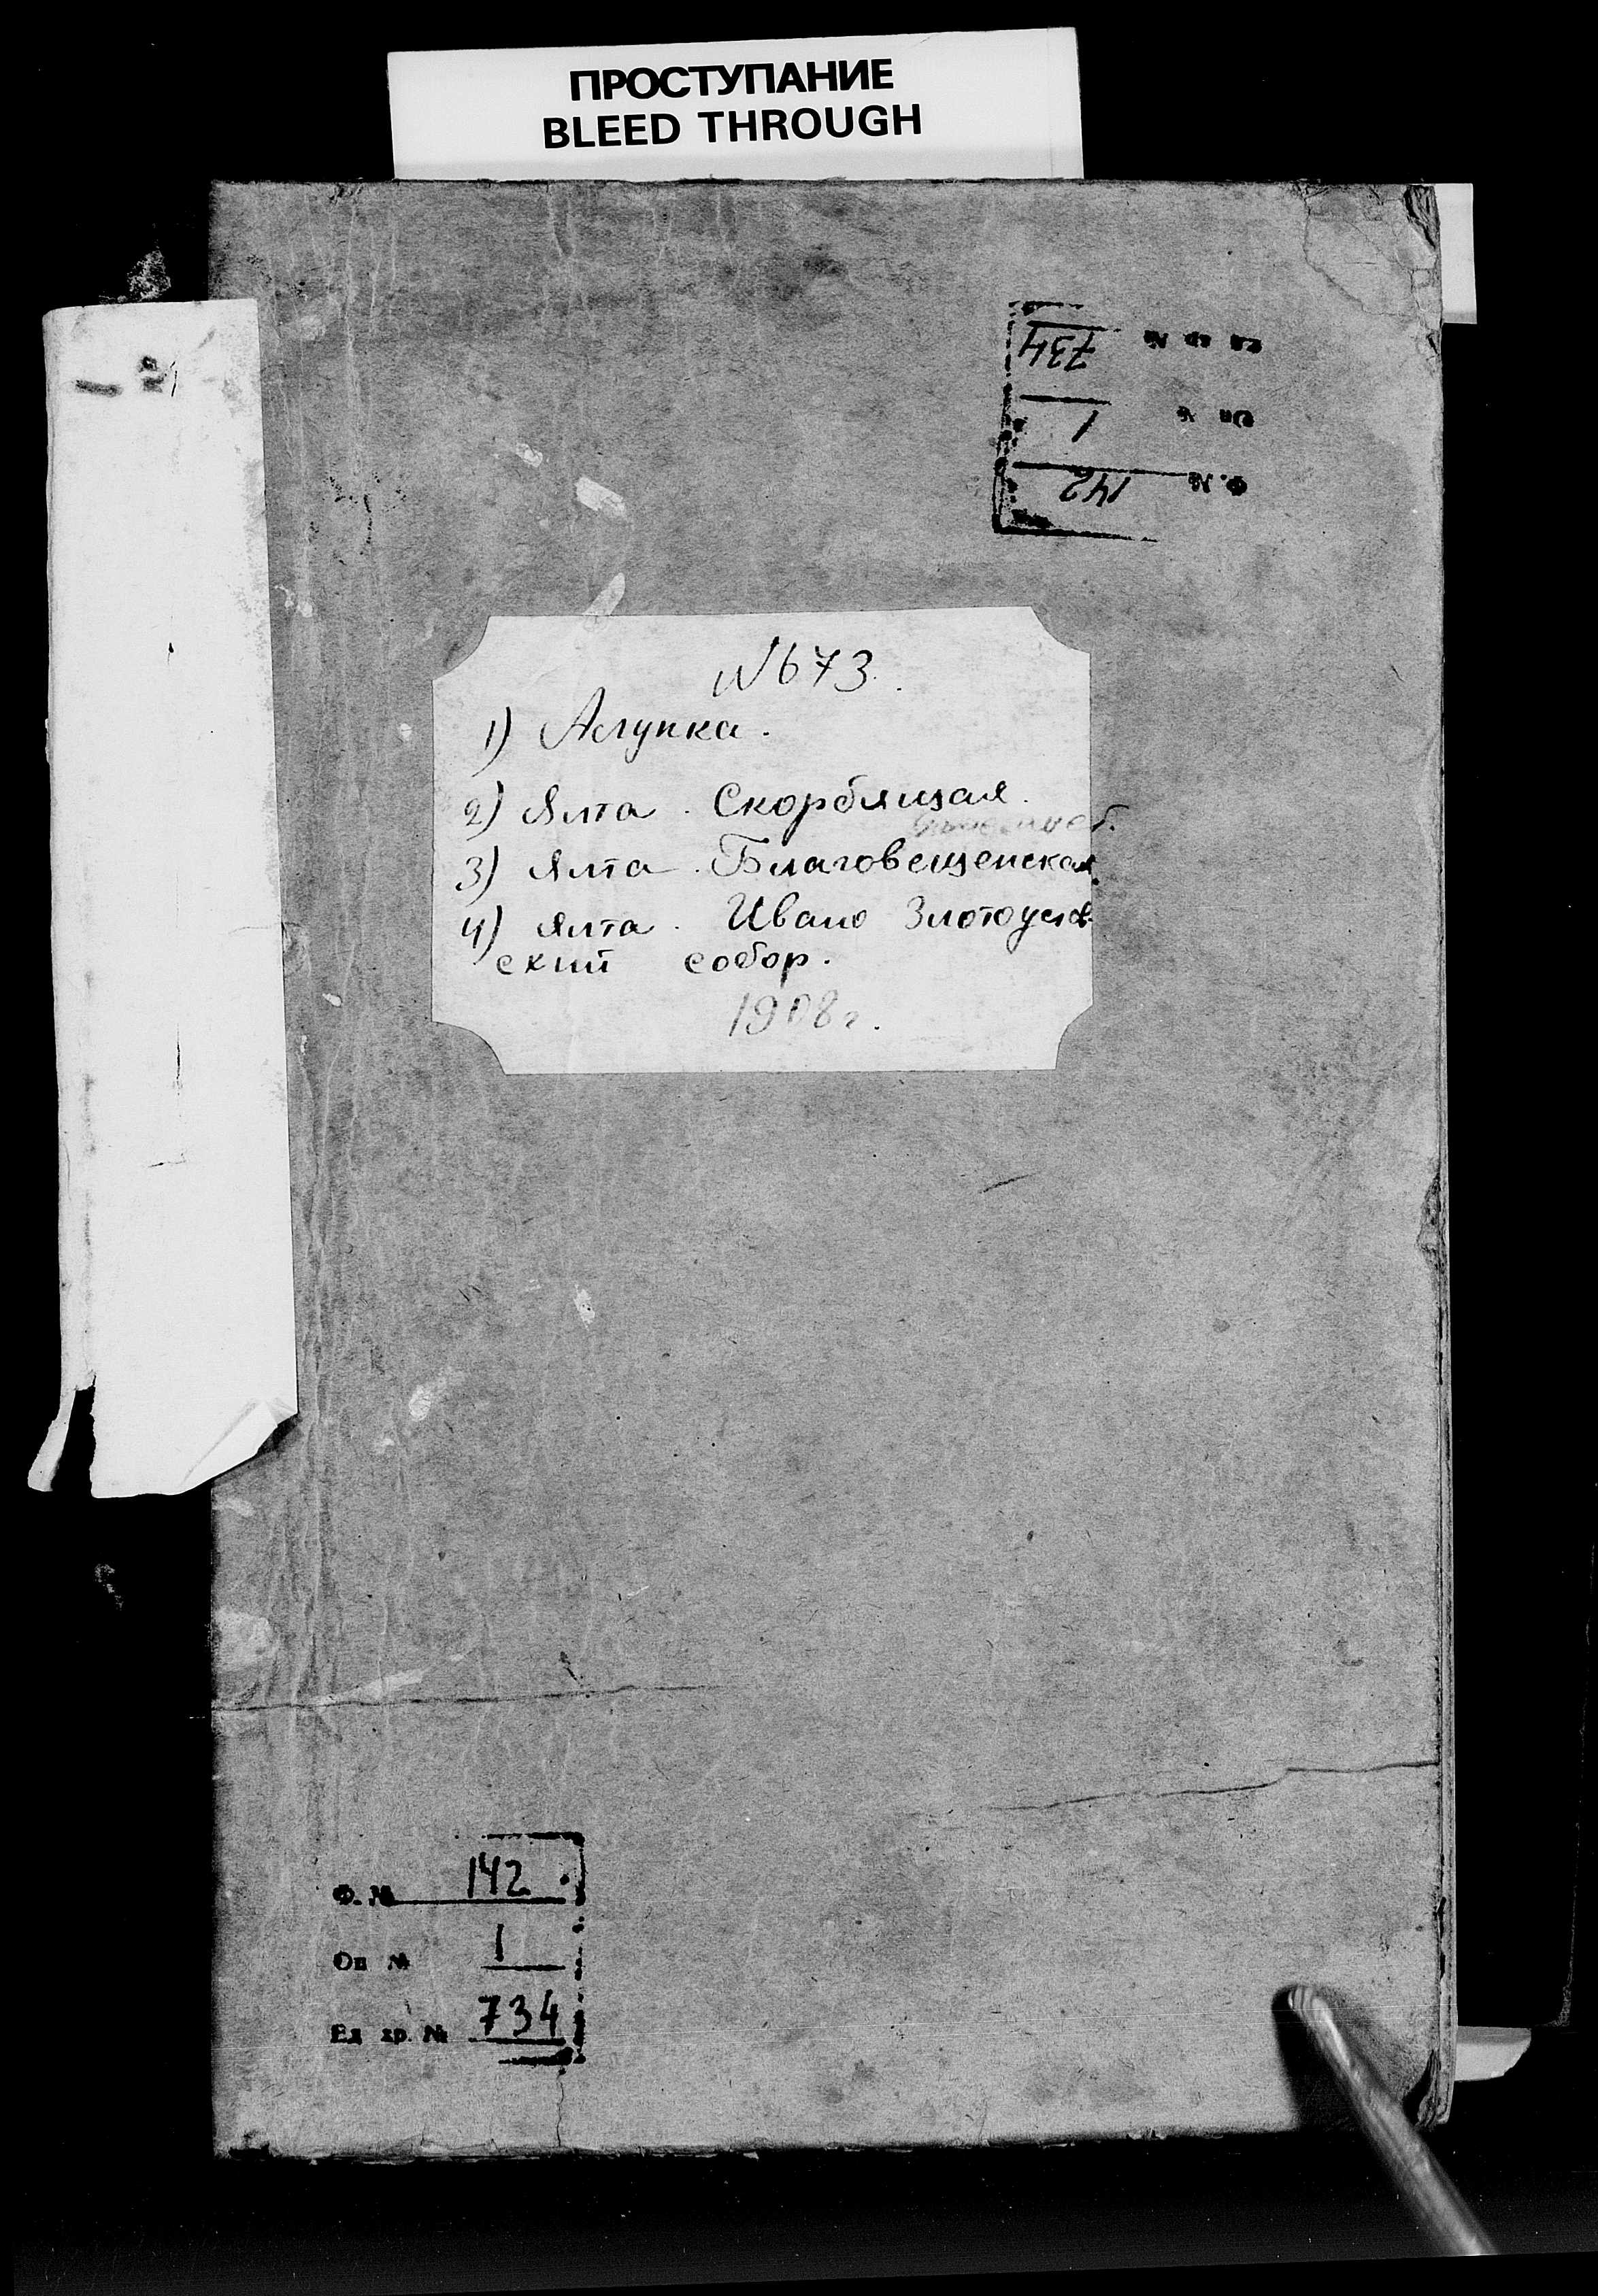 ПРОСТУПАНИЕ
BLEED THROUGH
Ед хр № 734
Оп № 1
Ф. № 142
№ 673.
1) Алупка.
2) Ялта. Скорбящая.
3) Ялта. Благовещенская.
4) Ялта. Ивано Златоустов
ский собор.
1908 г.
Ф. № 142
Оп № 1
Ед хр. № 734